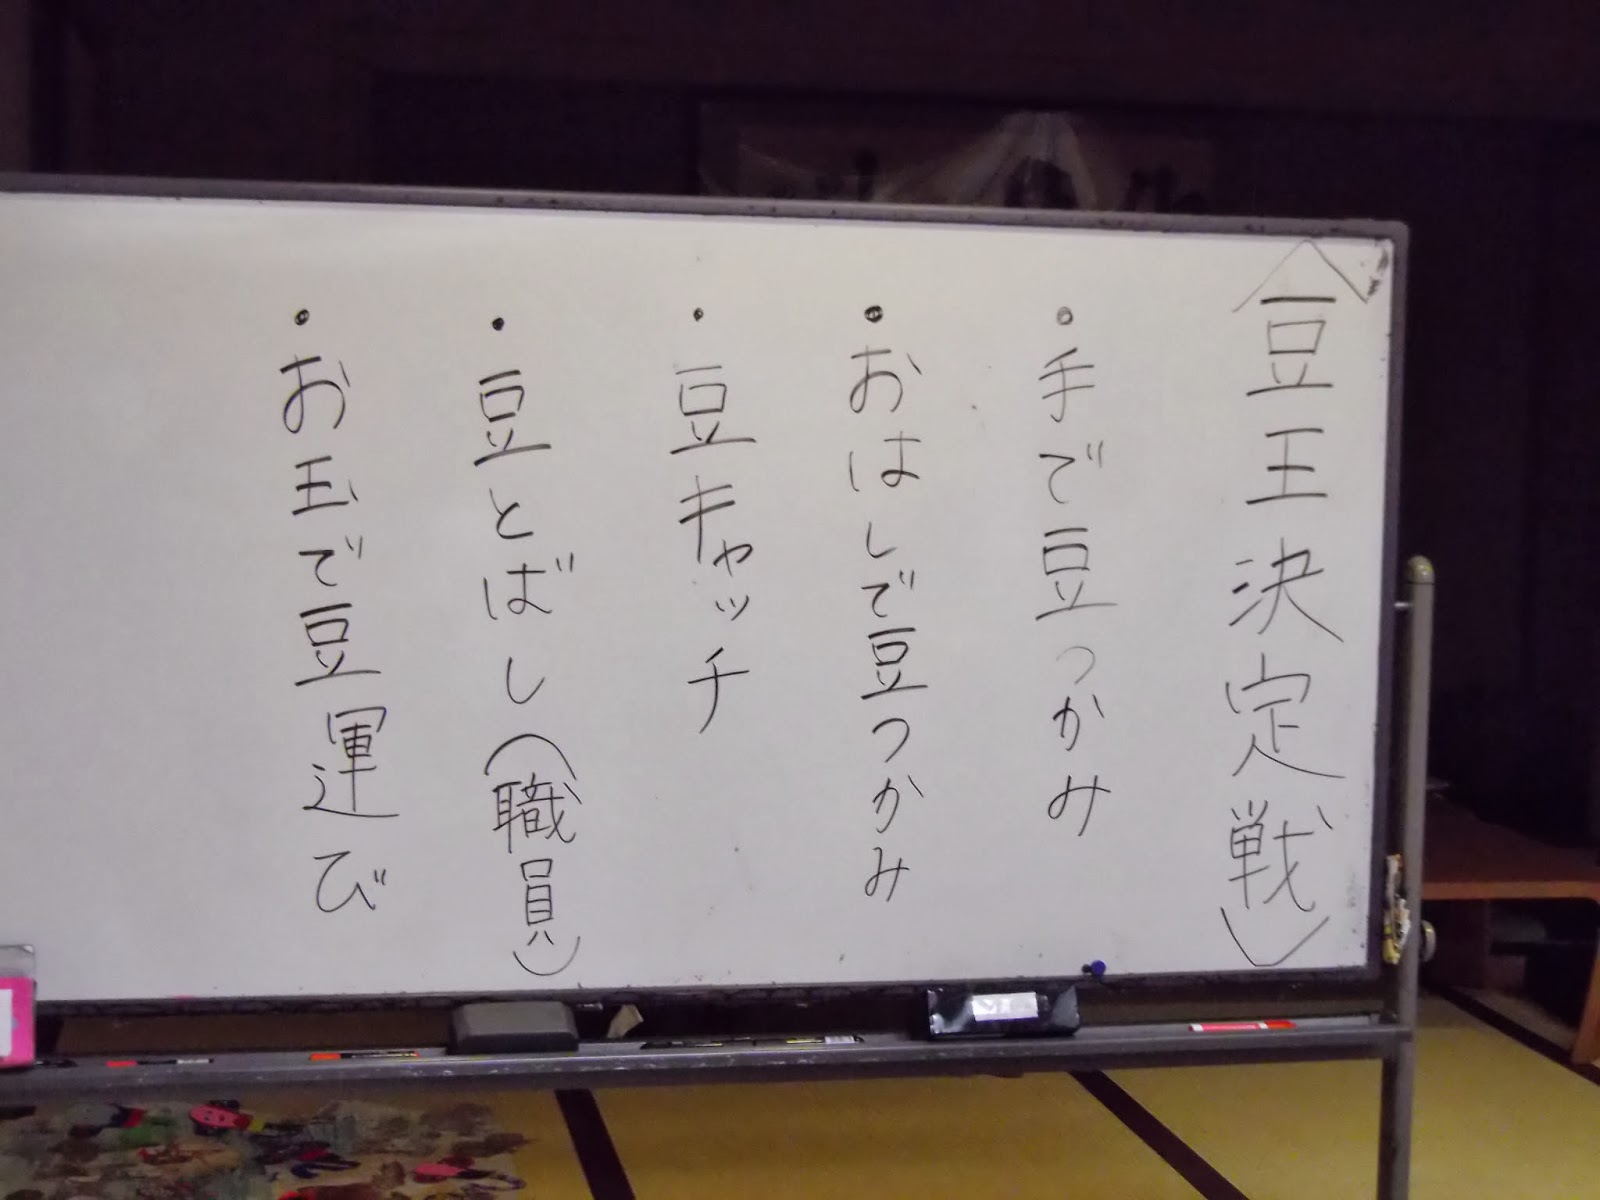 〈豆王決定戦〉
・手で豆つかみ
・おはしで豆つかみ
・豆キャッチ
・豆とばし(職員)
・お玉で豆運び